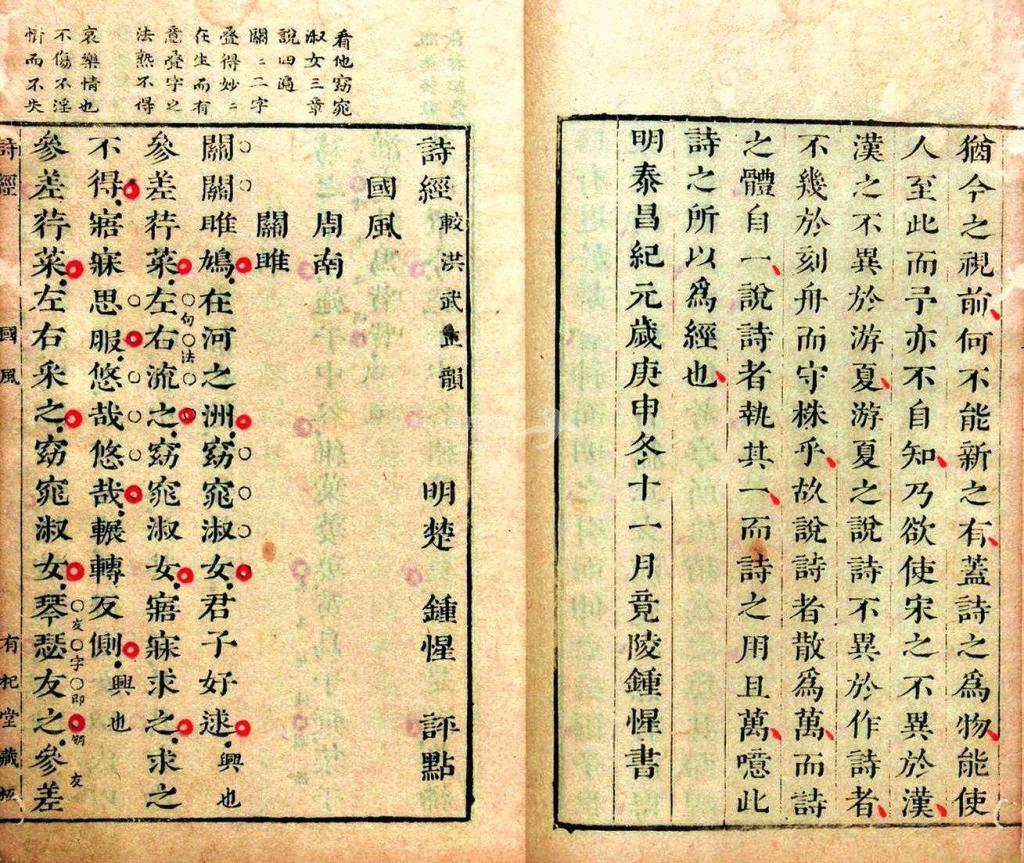 猶今之視前何不能新之有蓋詩之爲物能使
人至此而予亦不自知乃欲使宋之不異於漢
漢之不異於游夏游夏之說詩不異於作詩者
不幾於刻舟而守株乎故說詩者散爲萬而詩
之體自一說詩者執其一而詩之用且萬噫此
詩之所以爲經也
明泰昌紀元歲庚申冬十一月竟陵鍾惺書
看他窈窕
淑女三章
說四遍
關二二字
疊得妙二
在生而有
意疊字之
法熟不得
哀樂情也
不傷不淫
情而不失
詩經 較洪武正韻 明楚 鍾惺 評點
國風
周南
關雎
關關雎鳩在河之洲窈窕淑女君子好逑興也
參差荇菜左右流之窈窕淑女寤寐求之求之
句法
不得寤寐思服悠哉悠哉輾轉反側興也
參差荇菜左右采之窈窕淑女琴瑟友之參差
友字即
友
詩經 國風 有杞堂藏板